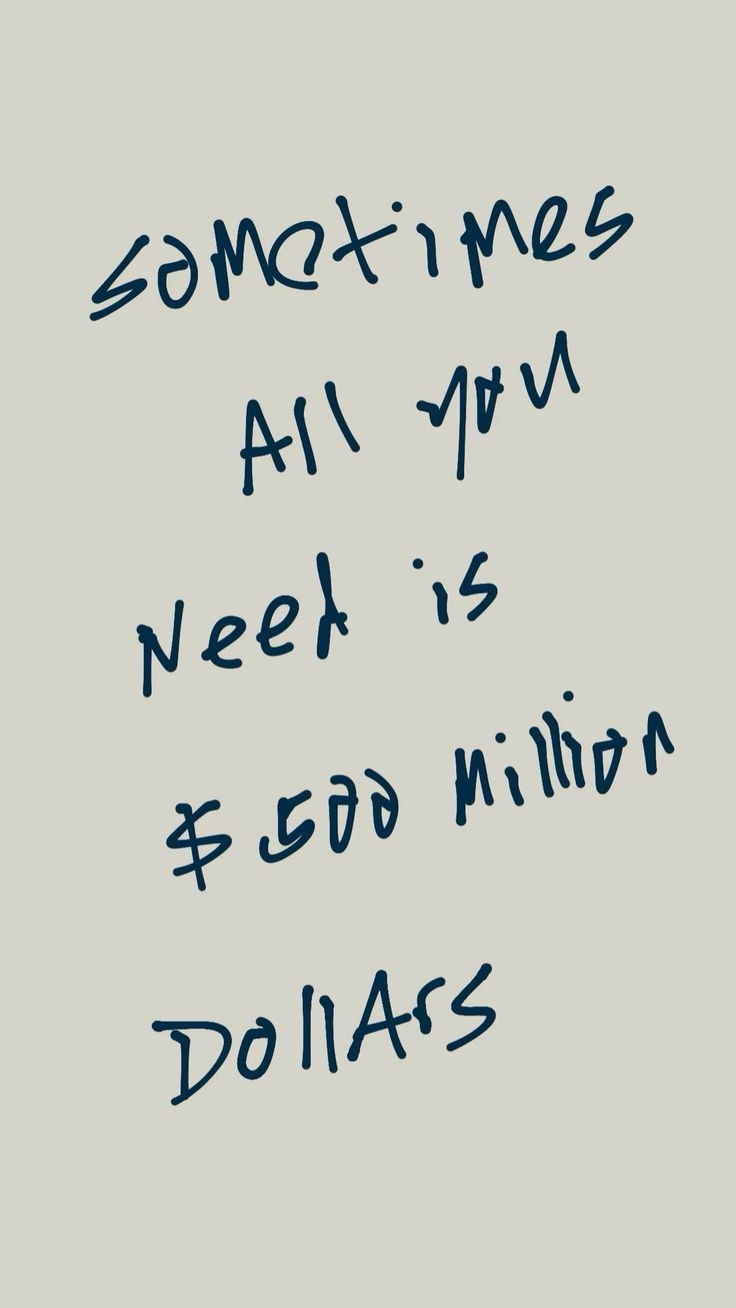 sometimes
All you
Need is
$500 Million
DollArs